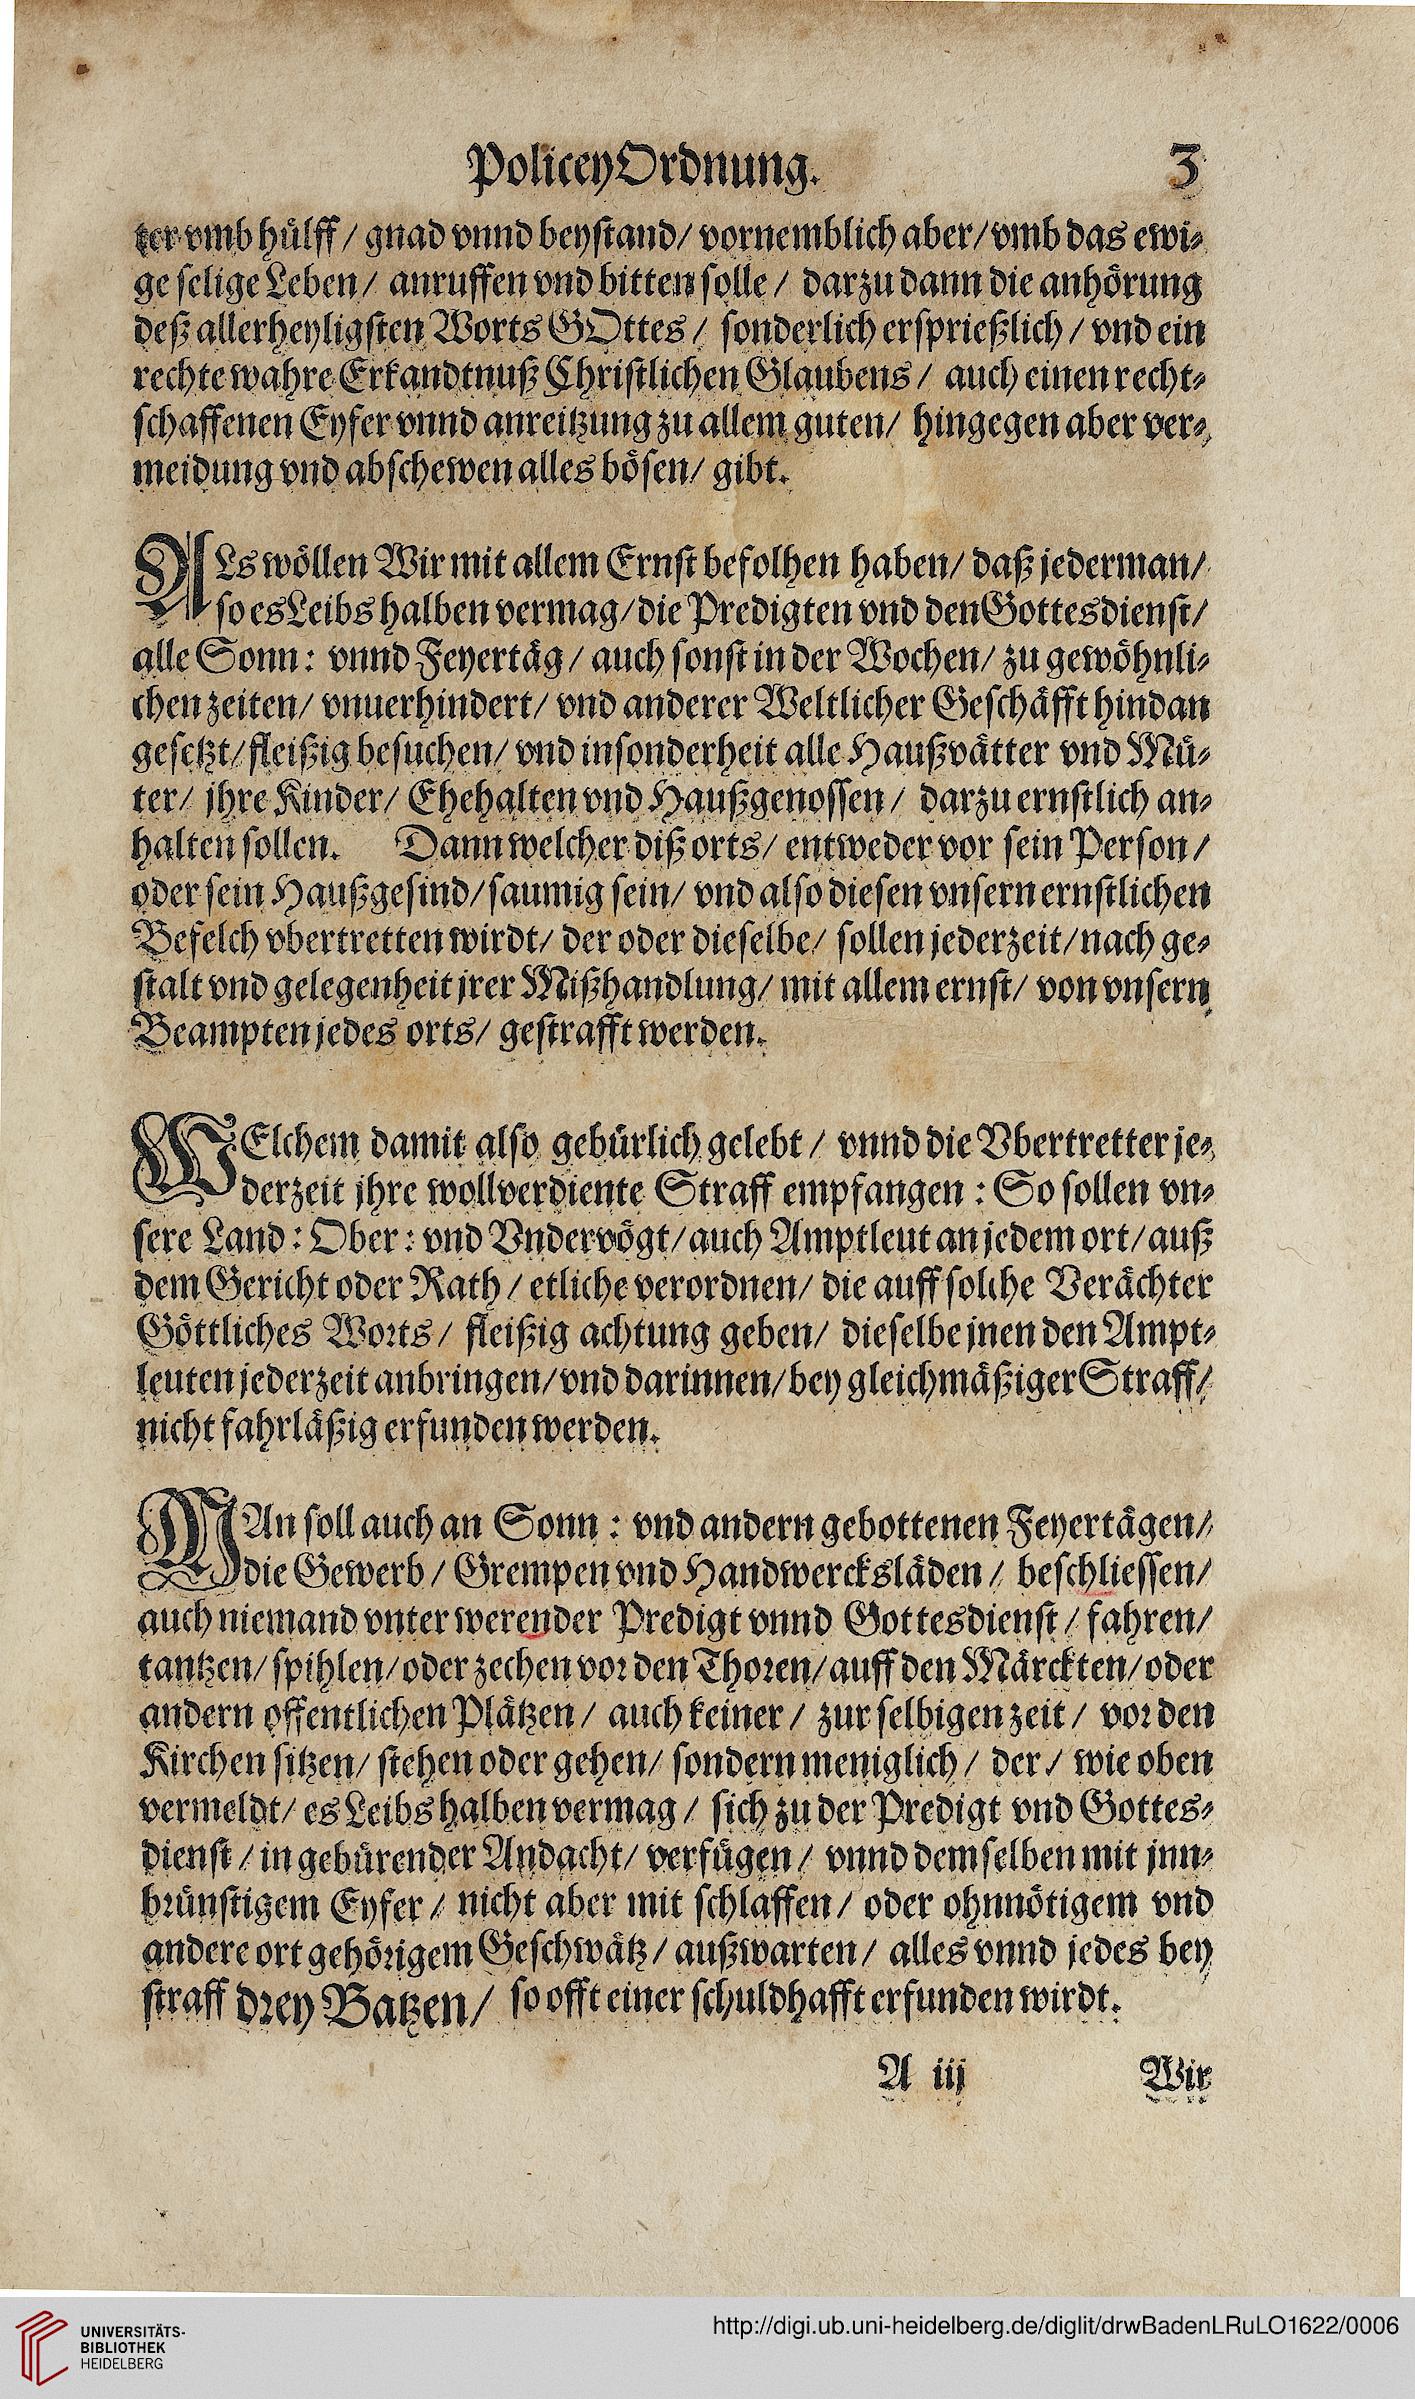 Policey Ordnung. 3
ter vmb hülff / gnad vnnd beystand / vornemblich aber / vmb das ewi-
ge selige Leben / anruffen vnd bitten solle / darzu dann die anhörung
deß allerheyligsten Worts GOttes / sonderlich ersprießlich / vnd ein
rechte wahre Erkandtnuß Christlichen Glaubens / auch einen recht-
schaffenen Eyfer vnnd anreitzung zu allem guten / hingegen aber ver-
meidung vnd abschewen alles bösen / gibt.
ALs wöllen Wir mit allem Ernst befolhen haben / daß jederman /
so es Leibs halben vermag / die Predigten vnd den Gottesdienst /
alle Sonn: vnnd Feyertäg / auch sonst in der Wochen / zu gewöhnli-
chen zeiten / vnuerhindert / vnd anderer Weltlicher Geschäfft hindan
gesetzt / fleißig besuchen / vnd insonderheit alle Haußvätter vnd Mü-
ter / jhre Kinder / Ehehalten vnd Haußgenossen / darzu ernstlich an-
halten sollen. Dann welcher diß orts / entweder vor sein Person /
oder sein Haußgesind / saumig sein / vnd also diesen vnsern ernstlichen
Befelch vbertretten wirdt / der oder dieselbe / sollen jederzeit / nach ge-
stalt vnd gelegenheit jrer Mißhandlung / mit allem ernst / von vnsern
Beampten jedes orts / gestrafft werden.
WElchem damit also gebürlich gelebt / vnnd die Vbertretter je-
derzeit jhre wollverdiente Straff empfangen : So sollen vn-
sere Land: Ober: vnd Vndervögt / auch Amptleut an jedem ort / auß
dem Gericht oder Rath / etliche verordnen / die auff solche Verächter
Göttliches Worts / fleißig achtung geben / dieselbe jnen den Ampt-
leuten jederzeit anbringen / vnd darinnen / bey gleichmäßiger Straff /
nicht fahrläßig erfunden werden.
MAn soll auch an Sonn : vnd andern gebottenen Feyertägen /
die Gewerb / Grempen vnd Handwercksläden / beschliessen /
auch niemand vnter werender Predigt vnnd Gottesdienst / fahren /
tantzen / spihlen / oder zechen vor den Thoren / auff den Märckten / oder
andern offentlichen Plätzen / auch keiner / zur selbigen zeit / vor den
Kirchen sitzen / stehen oder gehen / sondern meniglich / der / wie oben
vermeldt / es Leibs halben vermag / sich zu der Predigt vnd Gottes-
dienst / in gebürender Andacht / verfügen / vnnd demselben mit jnn-
brünstigem Eyfer / nicht aber mit schlaffen / oder ohnnötigem vnd
andere ort gehörigem Geschwätz / außwarten / alles vnnd jedes bey
straff drey Batzen / so offt einer schuldhafft erfunden wirdt.
A iij Wir
UNIVERSITÄTS-
BIBLIOTHEK
HEIDELBERG
http://digi.ub.uni-heidelberg.de/diglit/drwBadenLRuLO1622/0006